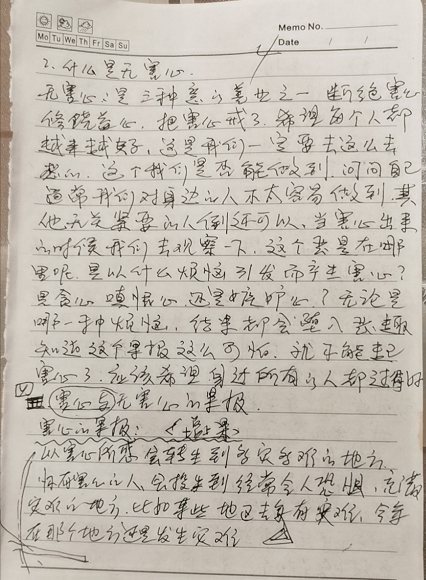 Memo No.
Mo Tu We Th Fr Sa Su
Date / /
2. 什么是无害心.
无害心：是三种意的善业之一 断绝害心
修饶益心, 把害心戒了. 希望每个人都
越来越好, 这是我们一定要去这么去
想的. 这个我们是否能做到. 问问自己
通常我们对身边的人不太容易做到. 其
他无关紧要的人倒还可以, 当害心出来
的时候我们去观察一下. 这个害是在哪
里呢. 是以什么烦恼引发而产生害心?
是贪心 嗔恨心 还是嫉妒心? 无论是
哪一种烦恼, 结果都会堕入恶趣
知道这个果报这么可怕. 就不能起
害心了. 应该希望身边所有的人都过得好
害心与无害心的果报.
害心的果报:
以害心所感会转生到多灾多难的地方.
怀有害心的人, 会投生到经常令人恐惧, 充满
灾难的地方. 比如某些地区去年有灾难, 今年
在那个地方还是发生灾难